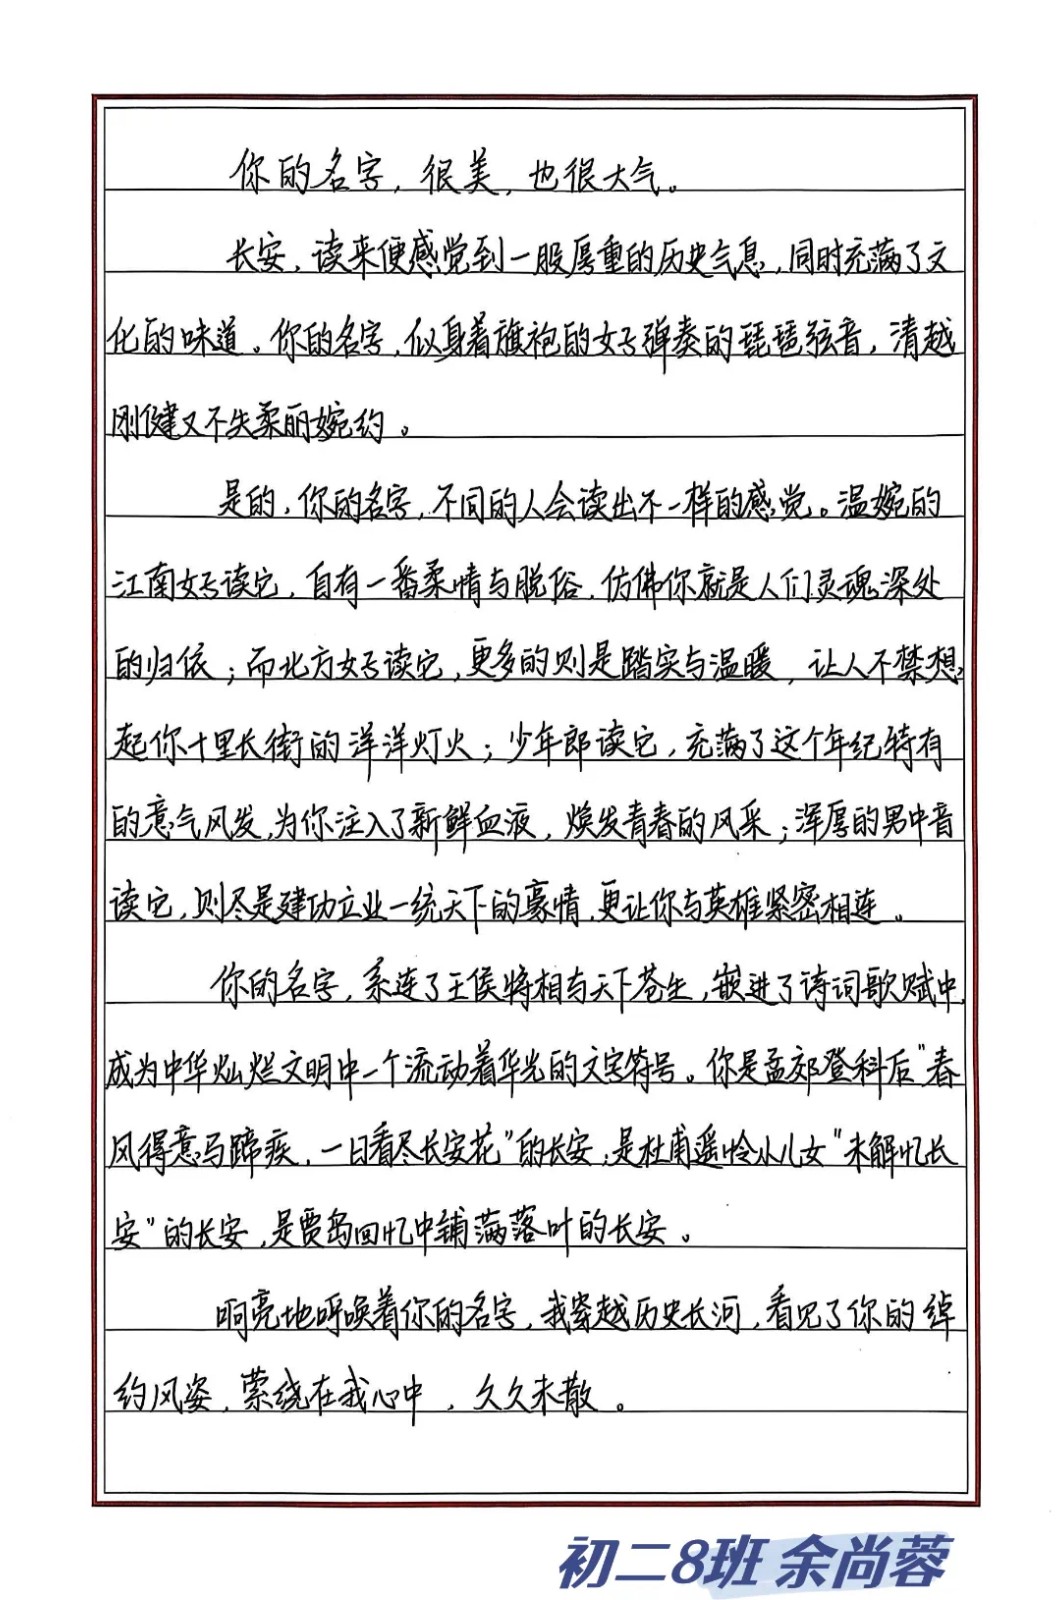 你的名字，很美，也很大气。
长安，读来便感觉到一股厚重的历史气息，同时充满了文
化的味道。你的名字，似身着旗袍的女子弹奏的琵琶弦音，清越
刚健又不失柔丽婉约。
是的，你的名字，不同的人会读出不一样的感觉。温婉的
江南女子读它，自有一番柔情与脱俗，仿佛你就是人们灵魂深处
的归依；而北方女子读它，更多的则是踏实与温暖，让人不禁想
起你十里长街的洋洋灯火；少年郎读它，充满了这个年纪特有
的意气风发，为你注入了新鲜血液，焕发青春的风采；浑厚的男中音
读它，则尽是建功立业一统天下的豪情，更让你与英雄紧密相连。
你的名字，系连了王侯将相与天下苍生，嵌进了诗词歌赋中，
成为中华灿烂文明中一个流动着华光的文字符号。你是孟郊登科后“春
风得意马蹄疾，一日看尽长安花”的长安，是杜甫遥怜小儿女“未解忆长
安”的长安，是贾岛回忆中铺满落叶的长安。
响亮地呼唤着你的名字，我穿越历史长河，看见了你的绰
约风姿，萦绕在我心中，久久未散。
初二8班 余尚蓉